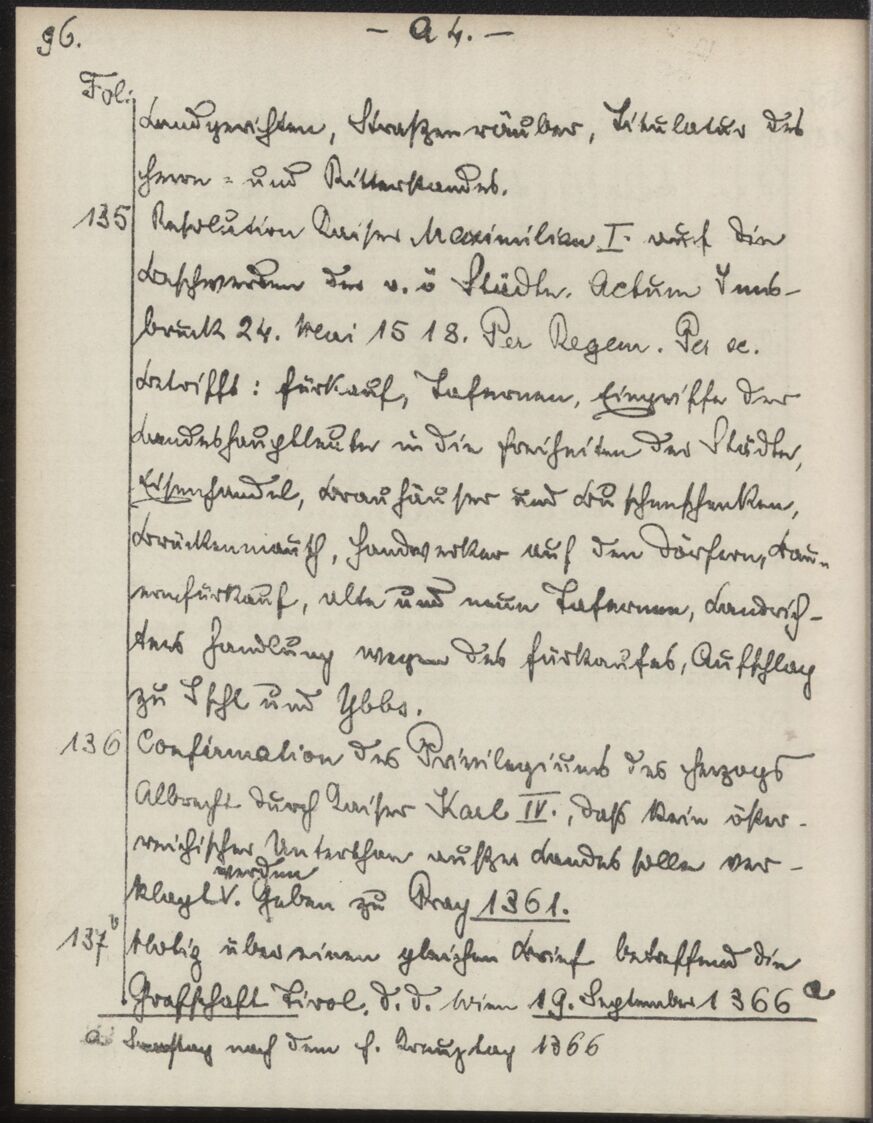 96.
- A 4. -
Fol:
Landgerichten, Straßenräuber, Titulatur des
Herrn- und Ritterstandes.
135 Resolution Kaiser Maximilian I. auf die
Beschwerden der o. ö Städte. Actum Inns-
bruck 24. Mai 1518. Per Regem. Per se.
Betrifft: Fürkauf, Tafernen, Eingriffe der
Landeshauptleute in die Freiheiten der Städte,
Eisenhandel, Brauhäuser und Buschenschenken,
Brückenmauth, Handwerker auf den Dörfern, Bau-
ernfürkauf, alte und neue Tafernen, Landrich-
ters Handlung wegen des Fürkaufes, Aufschlag
zu Ischl und Ybbs.
136 Confirmation des Privilegiums des Herzogs
Albrecht durch Kaiser Karl IV., daß kein öster-
reichischer Unterthan außer Landes solle ver-
werden
klagt V. Geben zu Prag 1361.
137v Notiz über einen gleichen Brief betreffend die
Grafschaft Tirol. d. d. Wien 19. September 1366 a
a nach dem h. Kreuztag 1366